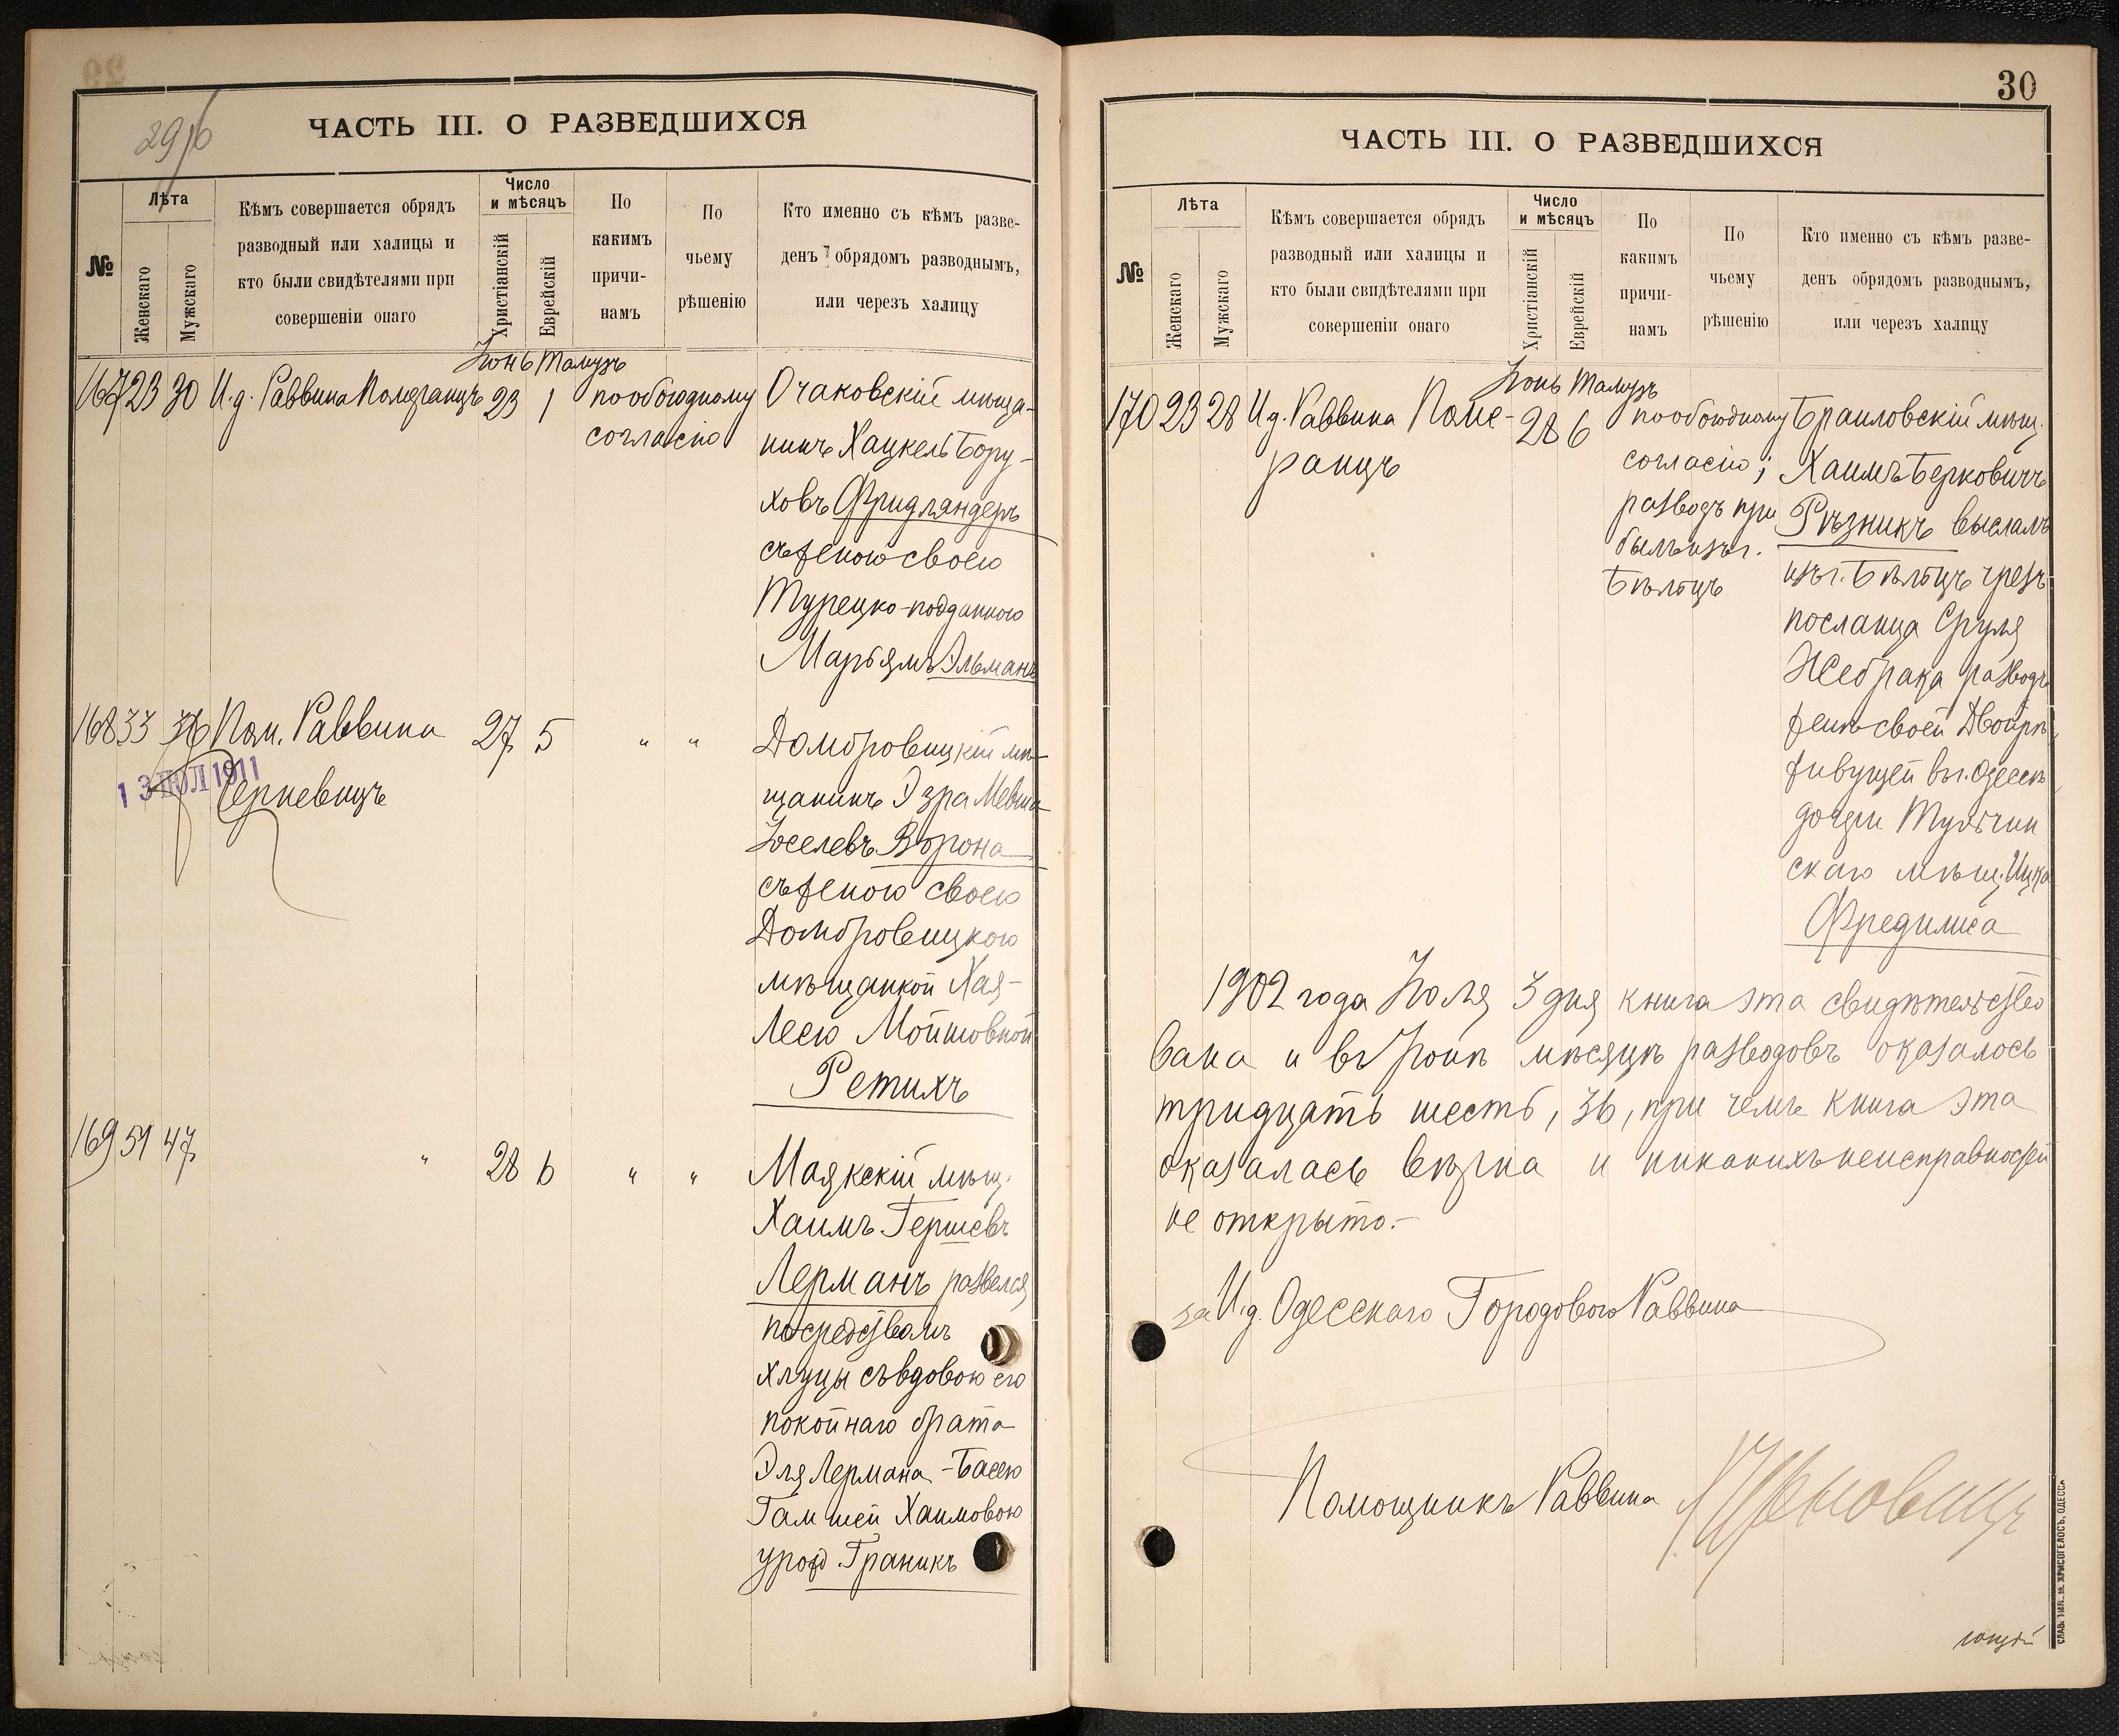 29/б
ЧАСТЬ III. О РАЗВЕДШИХСЯ
№
Лѣта
Женскаго
Мужскаго
Кѣмъ совершается обрядъ
разводный или халицы и
кто были свидѣтелями при
совершеніи онаго
Число
и мѣсяцъ
Христіанскій
Еврейскій
По
какимъ
причи-
намъ
По
чьему
рѣшенію
Кто именно съ кѣмъ разве-
денъ обрядомъ разводнымъ,
или черезъ халицу
Іюнь Тамузъ
167 23 30 И.д. Раввина Померанцъ 23 1 по обоюдному
согласію
Очаковскій мѣща-
нинъ Хацкель Бору-
ховъ Фридляндеръ
съ женою своею
Турецко-подданною
Марьямъ Эльманъ
168 33 36 Пом. Раввина 27 5 " "
13 ІЮЛ 1911
Домбровицкій мѣ-
щанинъ Эзра Мевша
Іоселевъ Ворона
съ женою своею
Домбровицкою
мѣщанкой Хая-
Лею Мойшовной
Ретихъ
169 51 47 " 28 6 " "
Маякскій мѣщ.
Хаимъ Гершевъ
Лерманъ развелся
посредствомъ
хлуцы съ вдовою его
покойнаго брата
Эля Лермана - Басею
Гамшей Хаимовою
урожд Граникъ
30
ЧАСТЬ III. О РАЗВЕДШИХСЯ
№
Лѣта
Женскаго
Мужскаго
Кѣмъ совершается обрядъ
разводный или халицы и
кто были свидѣтелями при
совершеніи онаго
Число
и мѣсяцъ
Христіанскій
Еврейскій
По
какимъ
причи-
намъ
По
чьему
рѣшенію
Кто именно съ кѣмъ разве-
денъ обрядомъ разводнымъ,
или черезъ халицу
Іюнь Тамузъ
170 23 28 И.д. Раввина Поме-
ранцъ
28 6
по обоюдному
согласію;
разводъ при
былъ изъ г.
Бѣлтцъ
Браиловскій мѣщ.
Хаимъ Берковичъ
Рѣзникъ выслалъ
изъ г. Бѣлтцъ чрезъ
посланца Сруля
Жебрака разводъ
женѣ своей Двойрѣ,
живущей въ г. Одессѣ,
дочери Тульчин
скаго мѣщ. Ицка
Фредилиса
1902 года Іюля 3 дня книга эта свидѣтельство
вана и въ Іюнѣ мѣсяцѣ разводовъ оказалось
тридцать шесть, 36, при чемъ книга эта
оказалась вѣрна и никакихъ неисправностей
не открыто.-
за И.д. Одесскаго Городового Раввина
Помощникъ Раввина
СЛАВ. ТИП. М. ХРИСОГЕЛОСЪ, ОДЕССА